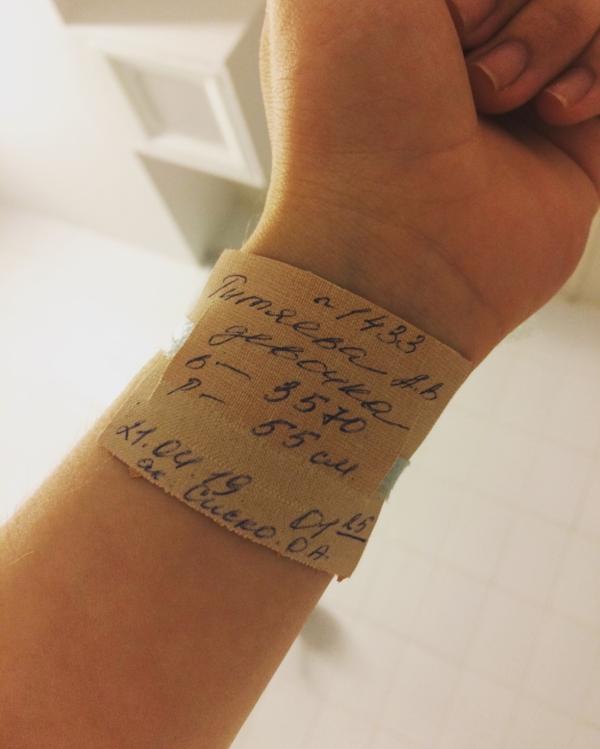 n 1433
Титяева А.В
девочка
в- 3570
р- 55 см
21.04.19 01 25
ак. Сиско. О.А.